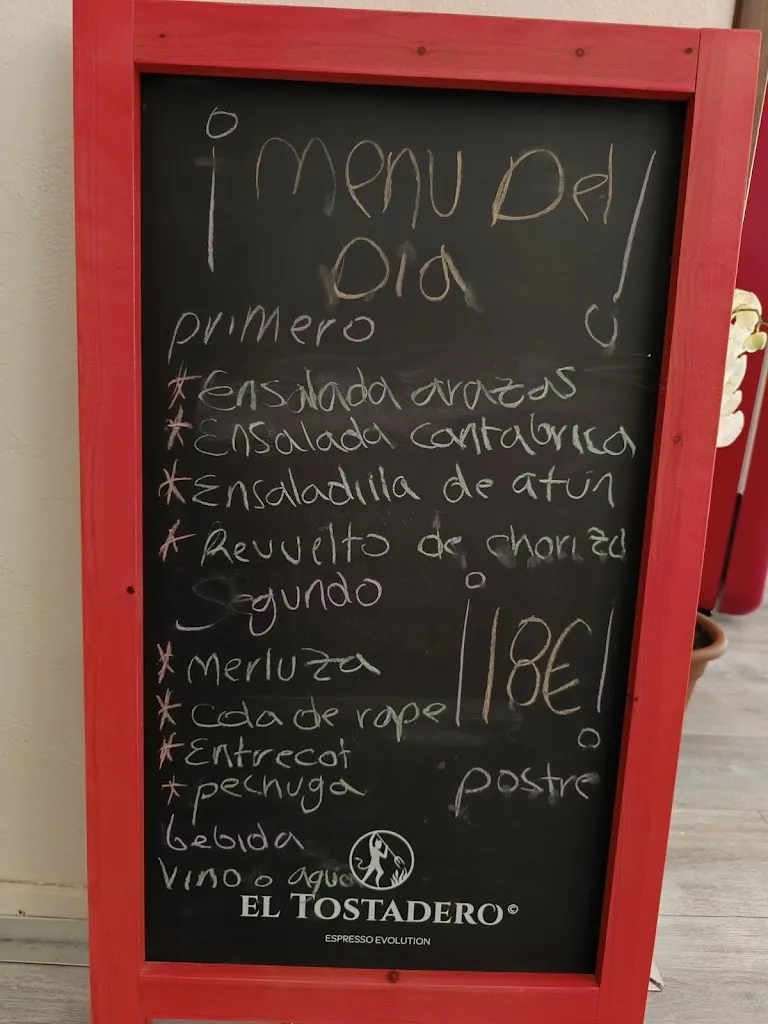 ¡Menu Del
Dia!
primero
*Ensalada arazas
*Ensalada cantabrica
*Ensaladilla de atún
*Revuelto de chorizo
Segundo
*merluza
*Cola de rape
¡18€!
*Entrecot
*pechuga
postre
bebida
Vino o agua
EL TOSTADERO©
ESPRESSO EVOLUTION